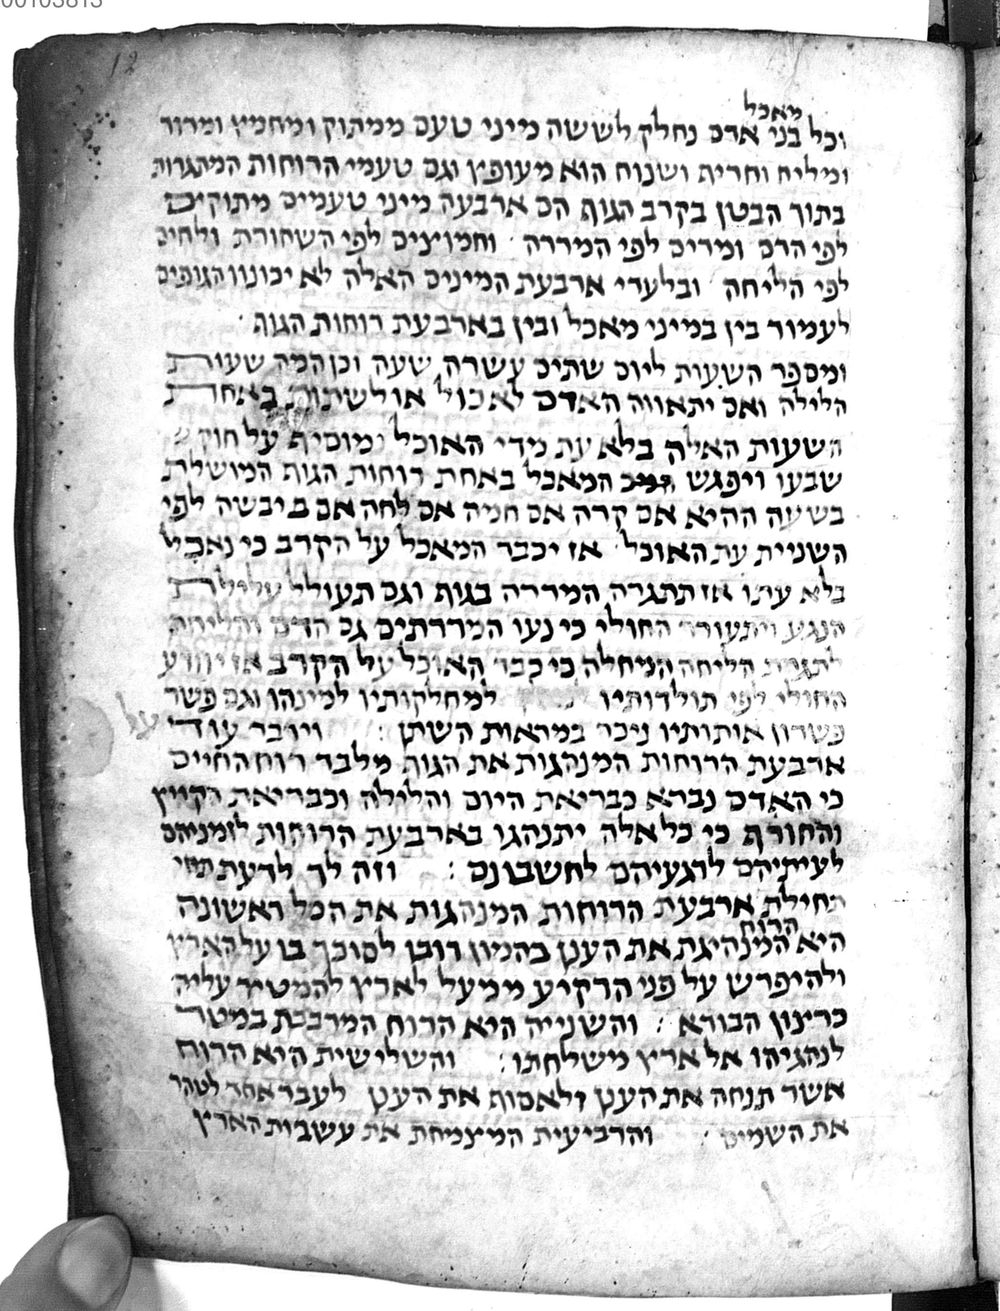 00103813
12
מאכל
וכל בני אדם נחלק לששה מיני טעם ממתוק ומחמיץ ומרור
ומליח וחרית ושנוח הוא מעופץ וגם טעמי הרוחות המתגרות
בתוך הבטן בקרב הגוף הם ארבעה מיני טעמים מתוקים
לפי הדם ומרים לפי המררה וחמוצים לפי השחורת ולחים
לפי הליחה ובלעדי ארבעת המינים האלה לא יכונון הגופים
לעמוד בין במיני מאכל ובין בארבעת רוחות הגוף
ומספר השעות ליום שתים עשרה שעה וכן המה שעות
הלילה ואם יתאווה האדם לאכול או לשתות באחת
השעות האילה בלא עת מדי האוכל ומוסיף על חוק
שבעו ויפגש המאכל באחת רוחות הגוף המושלת
בשעה ההיא אם קרה אם חמה אם לחה אם ביבשיה לפי
השניית עת האוכל אז יכבד המאכל על הקרב כי נאכל
בלא עתו אז תתגרה המררה בגוף וגם תעולל עלילת
הנגע ויתעורר החולי כי נעו המררתים גם הדם והליחה
הליחה המחלה כי כבד האוכל על הקרב אז יוודע
החולי לפי תולדותיו למחלקותיו למינהו וגם פשר
פשרון אותותיו ניכר במראות השתן וידבר עוד על
ארבעת הרוחות המנהגות את הגוף מלבד רוח החיים
כי האדם נברא כבריאת היום והלילה וכבריאת הקייץ
והחורף כי כל אלה יתנהגו בארבעת הרוחות לזמניהם
לעיתיהם לרגעיהם לחשבונם : וזה לך לדעת
תחילת ארבעת הרוחות המנהגות את הכל ראשונה
הרוח
היא המנהיגת את הענן בהמון רובו לסובך בו על הארץ
ולהיפרש על פני הרקיע ממעל לארץ להמטיר עליה
כרצון הבורא : והשנייה היא הרוח המרבבת במטר
לנהגיהו אל ארץ משלחתו : והשלישית היא הרוח
אשר תנחה את הענן ולאסוף את הענן לעבר אחר לטהר
את השמים : והרביעית המיצמחת את עשבות הארץ